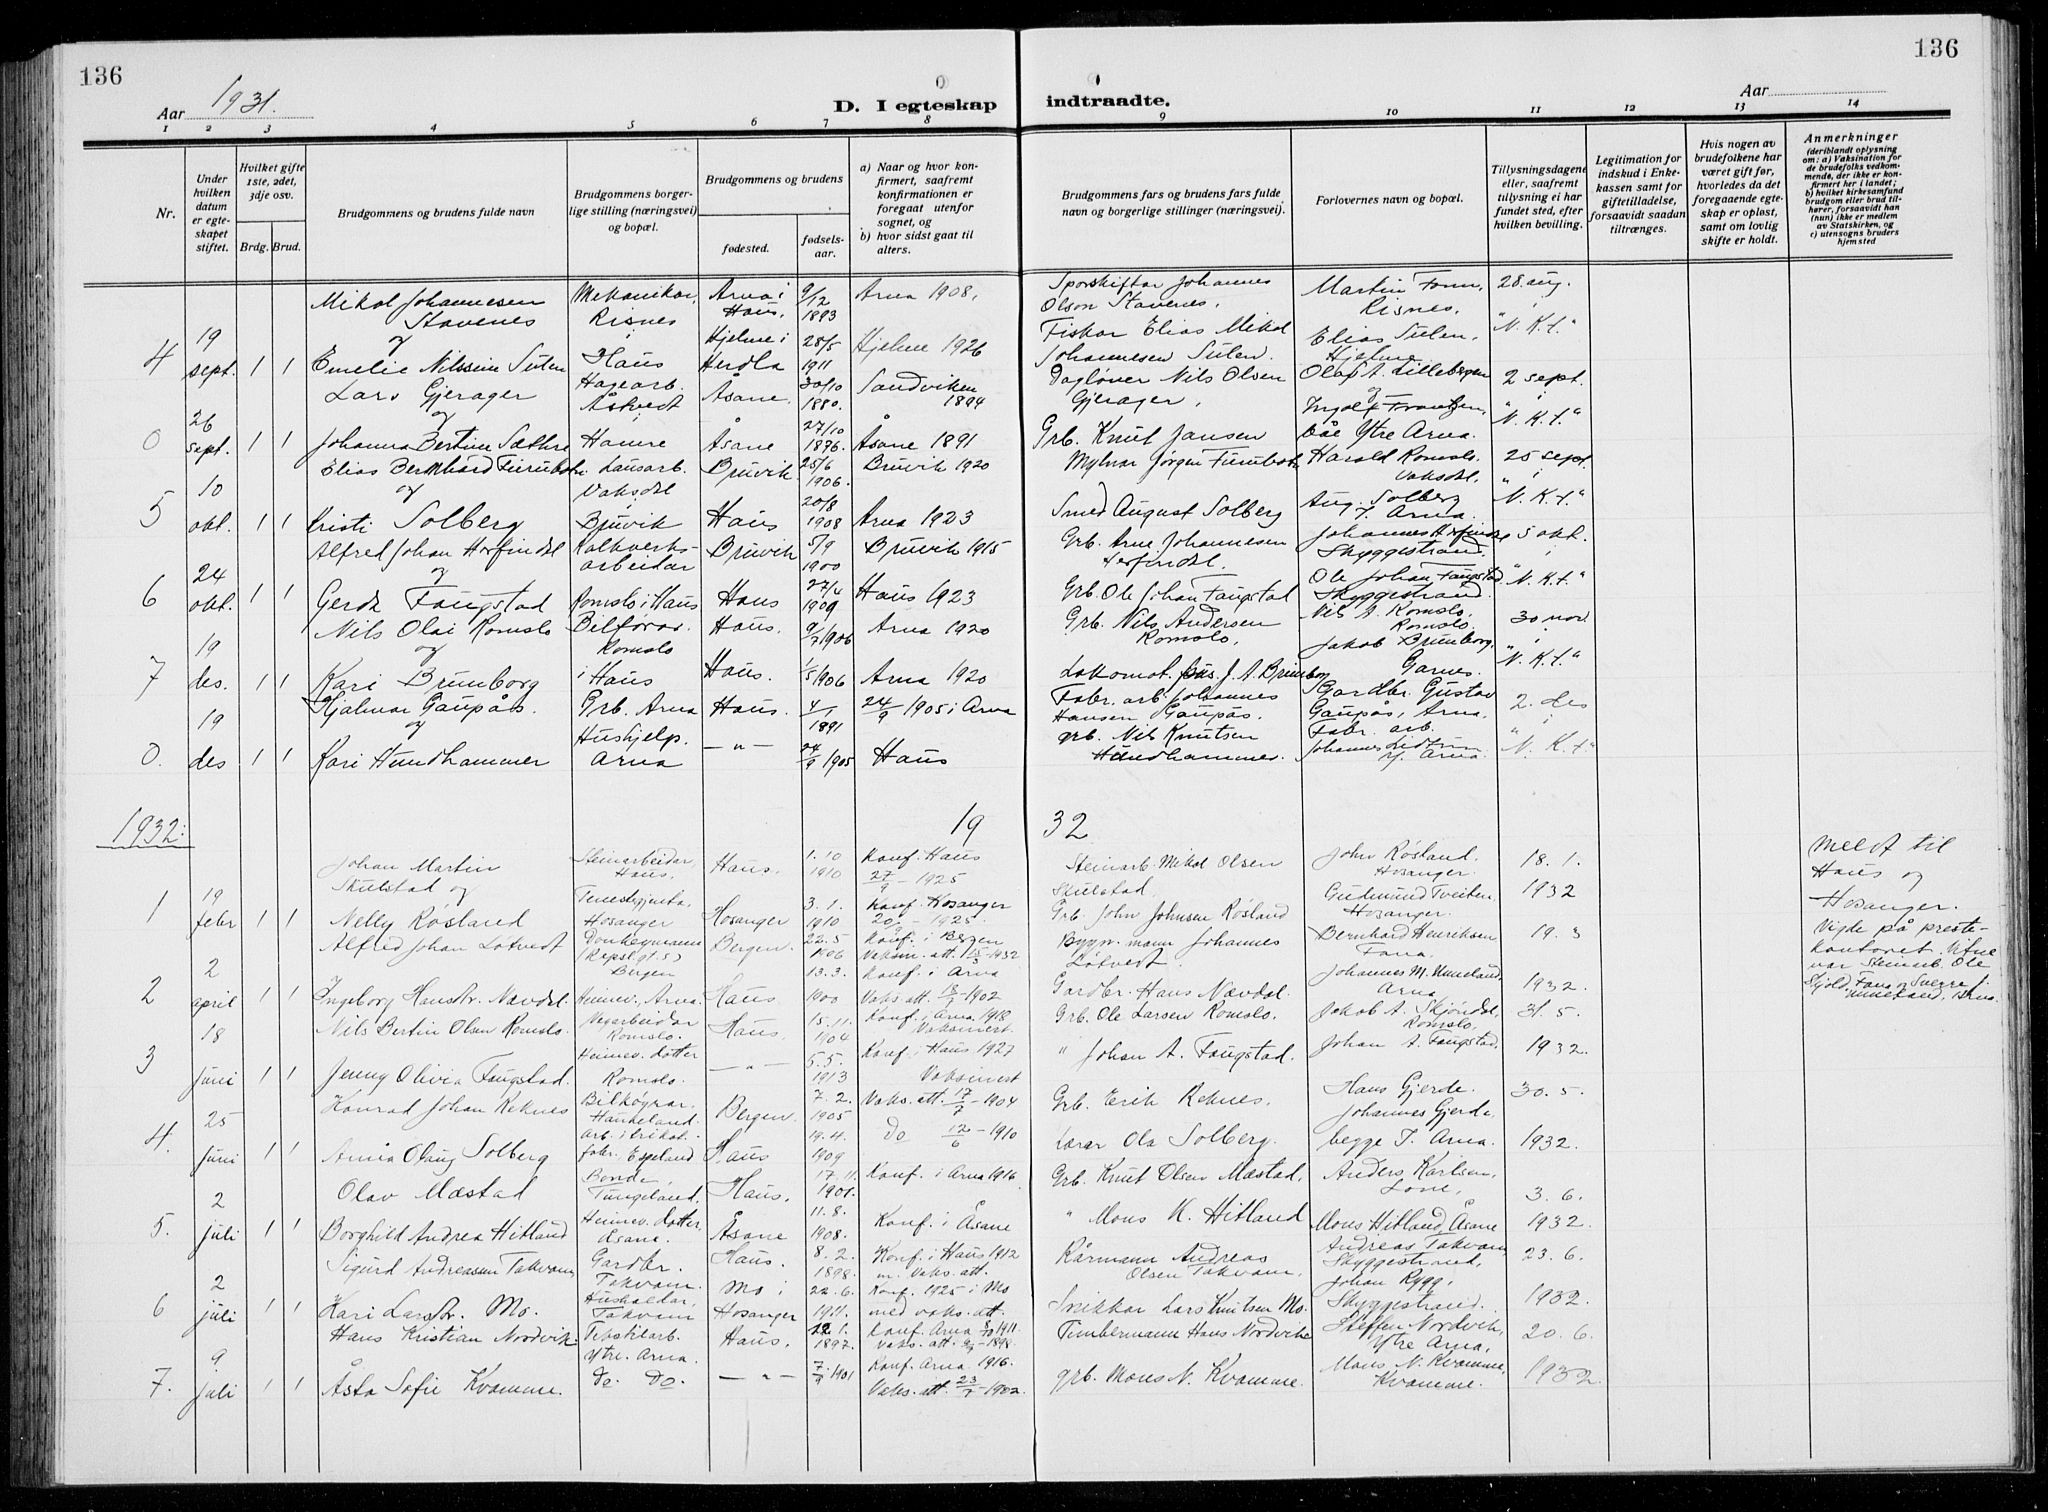 136
136
Aar 1931.
D. I egteskap indtraadte.
Aar
1 2 3 4 5 6 7 8 9 10 11 12 13 14
Nr.
Under hvilken datum er egteskapet stiftet.
Hvilket gifte 1ste, 2det, 3dje osv.
Brdg. Brud.
Brudgommens og brudens fulde navn
Brudgommens borgerlige stilling (næringsvei) og bopæl.
Brudgommens og brudens
fødested.
fødselsaar.
a) Naar og hvor konfirmert, saafremt konfirmationen er foregaat utenfor sognet, og
b) hvor sidst gaat til alters.
Brudgommens fars og brudens fars fulde navn og borgerlige stillinger (næringsvei).
Forlovernes navn og bopæl.
Tillysningsdagene eller, saafremt tillysning ei har fundet sted, efter hvilken bevilling.
Legitimation for indskud i Enkekassen samt for giftetilladelse, forsaavidt saadan tiltrænges.
Hvis nogen av brudefolkene har været gift før, hvorledes da det foregaaende egteskap er opløst, samt om lovlig skifte er holdt.
Anmerkninger
(deriblandt oplysning om: a) Vaksination for de brudefolks vedkommende, der ikke er konfirmert her i landet;
b) hvilket kirkesamfund brudgom eller brud tilhører, forsaavidt han (hun) ikke er medlem av Statskirken, og
c) utensogns bruders hjemsted
Mikal Johannesen Stavenes Mekanikar, Risnes Arna i Haus. 9/12 1893 Arna 1908, Sporskiftar Johannes Olson Stavenes. Martin Fonn, Risnes. 28. aug.
4 19 sept. 1 1 og Emelie Nilssine Sulen Haus Hjelme i Herdla 28/5 1911 Hjelme 1926 Fiskar Elias Mikal Johannesen Sulen. Elias Sulen, Hjelme "N.K.t."
Lars Gjerager Hagearb. Åstvedt Åsane. 30/10 1880. Sandviken 1894 Dagløner Nils Olsen Gjerager, Olaf A. Lillebergen 2 sept.
0 26 sept. 1 1 og Johanna Bertine Sæthre Hamre Åsane 27/10 1876. Åsane 1891 Grb. Knut Jansen og Ingolf Frantzen, båe Ytre Arna. "N.K.t."
Elias Bernhard Furubotn Lausarb. Vaksdal Bruvik 25/6 1906. Bruvik 1920 Mylnar Jørgen Furubotn Harald Romslo, Vaksdal. 25 sept.
5 10 okt. 1 1 og Kristi Solberg Bruvik Haus 20/8 1908 Arna 1923 Smed August Solberg Aug. Solberg Y. Arna. "N.K.t."
Alfred Johan Herfindal Kalkverksarbeidar Bruvik 5/9 1900 Bruvik 1915 Grb. Arne Johannesen Herfindal. Johannes Herfindal Skyggestrand. 5 okt.
6 24 okt. 1 1 og Gerda Faugstad Romslo i Haus Haus 27/4 1909 Haus 1923 Grb. Ole Johan Faugstad Ole Johan Faugstad Skyggestrand. "N.K.t."
Nils Olai Romslo Bilførar. Romslo Haus. 9/7 1906 Arna 1920 Grb. Nils Andersen Romslo, Nils A. Romslo, Romslo. 30 nov.
7 19 des. 1 1 og Kari Brunborg i Haus Haus. 1/5 1906 Arna 1920 Lokomot. J. A. Brunborg Jakob Brunborg, Garnes. "N.K.t."
Hjalmar Gaupås. Grb. Arna Haus. 1891 24/9 1905 i Arna Fabr. arb. Johannes Hansen Gaupås. Gardbr. Gustav Gaupås, Arna. 2. des
0. 19 des 1 1 og Kari Hundhammer Hushjelp. Arna —"— 24/9 1905 Haus grb. Nils Knutsen Hundhammer. Fabr. arb. Johannes Y. Arna. "N.K.t"
1932: 19 32
Johan Martin Skulstad og Steinarbeidar, Haus, Haus. 1.10 1910 Konf. Haus 27/9 - 1925 Steinarb. Mikal Olsen Skulstad. John Røsland. Hosanger. 18.1. Meldt til Haus og Hosanger.
1 19 febr 1 1 Nelly Røsland Tenestgjenta, Hosanger Hosanger 3.1. 1910 Konf. Hosanger 1925. Grb. John Johnsen Røsland Gudmund Tveiten, Hosanger. 1932
Alfred Johan Løtvedt Donkeymann (Repslgt. 5) Bergen Bergen. 22.5 1906 Konf. i Bergen Vaksin. att. 15/3 - 1932 Byggn. mann Johannes Løtvedt. Bernhard Henriksen Fana. 19.3 Vigde på prestekontoret. Vitne var Steinarb. Ole Skjold, Fana og Sverre Unneland, Arna.
2 2 april 1 1 Ingeborg Hansdtr. Nævdal. Heimev. Arna. Haus 13.3. 1900 Konf. i Arna Vaks. att. 1902 Gardbr. Hans Nævdal. Johannes M. Unneland, Arna 1932.
Nils Bertin Olsen Romslo. Vegarbeidar Romslo. Haus 15.11. 1904 Konf. i Arna 1918 Vaksinert Grb. Ole Larsen Romslo. Jakob A. Skjøndal, Romslo, 31.5.
3 18 juni 1 1 Jenny Olivia Faugstad. Heimev. dotter Romslo. —"— 5.5. 1913 Konf. i Haus 1927 Vaksinert " Johan A. Faugstad. Johan A. Faugstad. 1932.
Konrad Johan Reknes Bilkøyrar. Haukeland. Bergen. 7.2. 1905 Vaks. att. 17/7 - 1904 Grb. Erik Reknes. Hans Gjerde. 30.5.
4. 25 juni 1 1 Anna Olaug Solberg arb. i trikot. fabr. Espeland Haus 19.4. 1909 Do 12/6 - 1910 Lærar Ola Solberg. Johannes Gjerde, begge I. Arna. 1932.
Olav Mæstad Bonde, Tungeland, Haus. 17.11. 1901. Konf. i Arna 1916. Grb. Knut Olsen Mæstad. Anders Karlsen, Lone. 3.6.
5. 2 juli 1 1 Borghild Andrea Hitland Heimev. dotter Åsane. Åsane 11.8. 1908. Konf. i Åsane " Mons K. Hitland Mons Hitland, Åsane 1932.
Sigurd Andreassen Takvam Gardbr. Takvam. Haus. 8.2. 1898. Konf. i Haus 1912 m. vaks. att. Rørmann Andreas Olsen Takvam. Andreas Takvam Skyggestrand, 23.6.
6. 2 juli 1 1 Kari Larsdtr. Mo. Hushaldar, Takvam Mo i Hosanger 22.6. 1911. Konf. 1925 i Mo med vaks. att. Snikkar Lars Knutsen Mo. Johan Rygg, Skyggestrand. 1932.
Hans Kristian Nordvik Tekstilarb. Ytre. Arna. Haus. 22.1. 1897. Konf. Arna 1911. Vaks. att. 1898. Timbermann Hans Nordvik Steffen Nordvik, Ytre Arna, 20.6.
7. 9 juli 1 1 Åsta Sofie Kvamme. Do. Do. —"— 7/9 1901 Konf. Arna 1916. Vaks. att. 1902. grb. Mons N. Kvamme. Mons N. Kvamme, Kvamme. 1932.